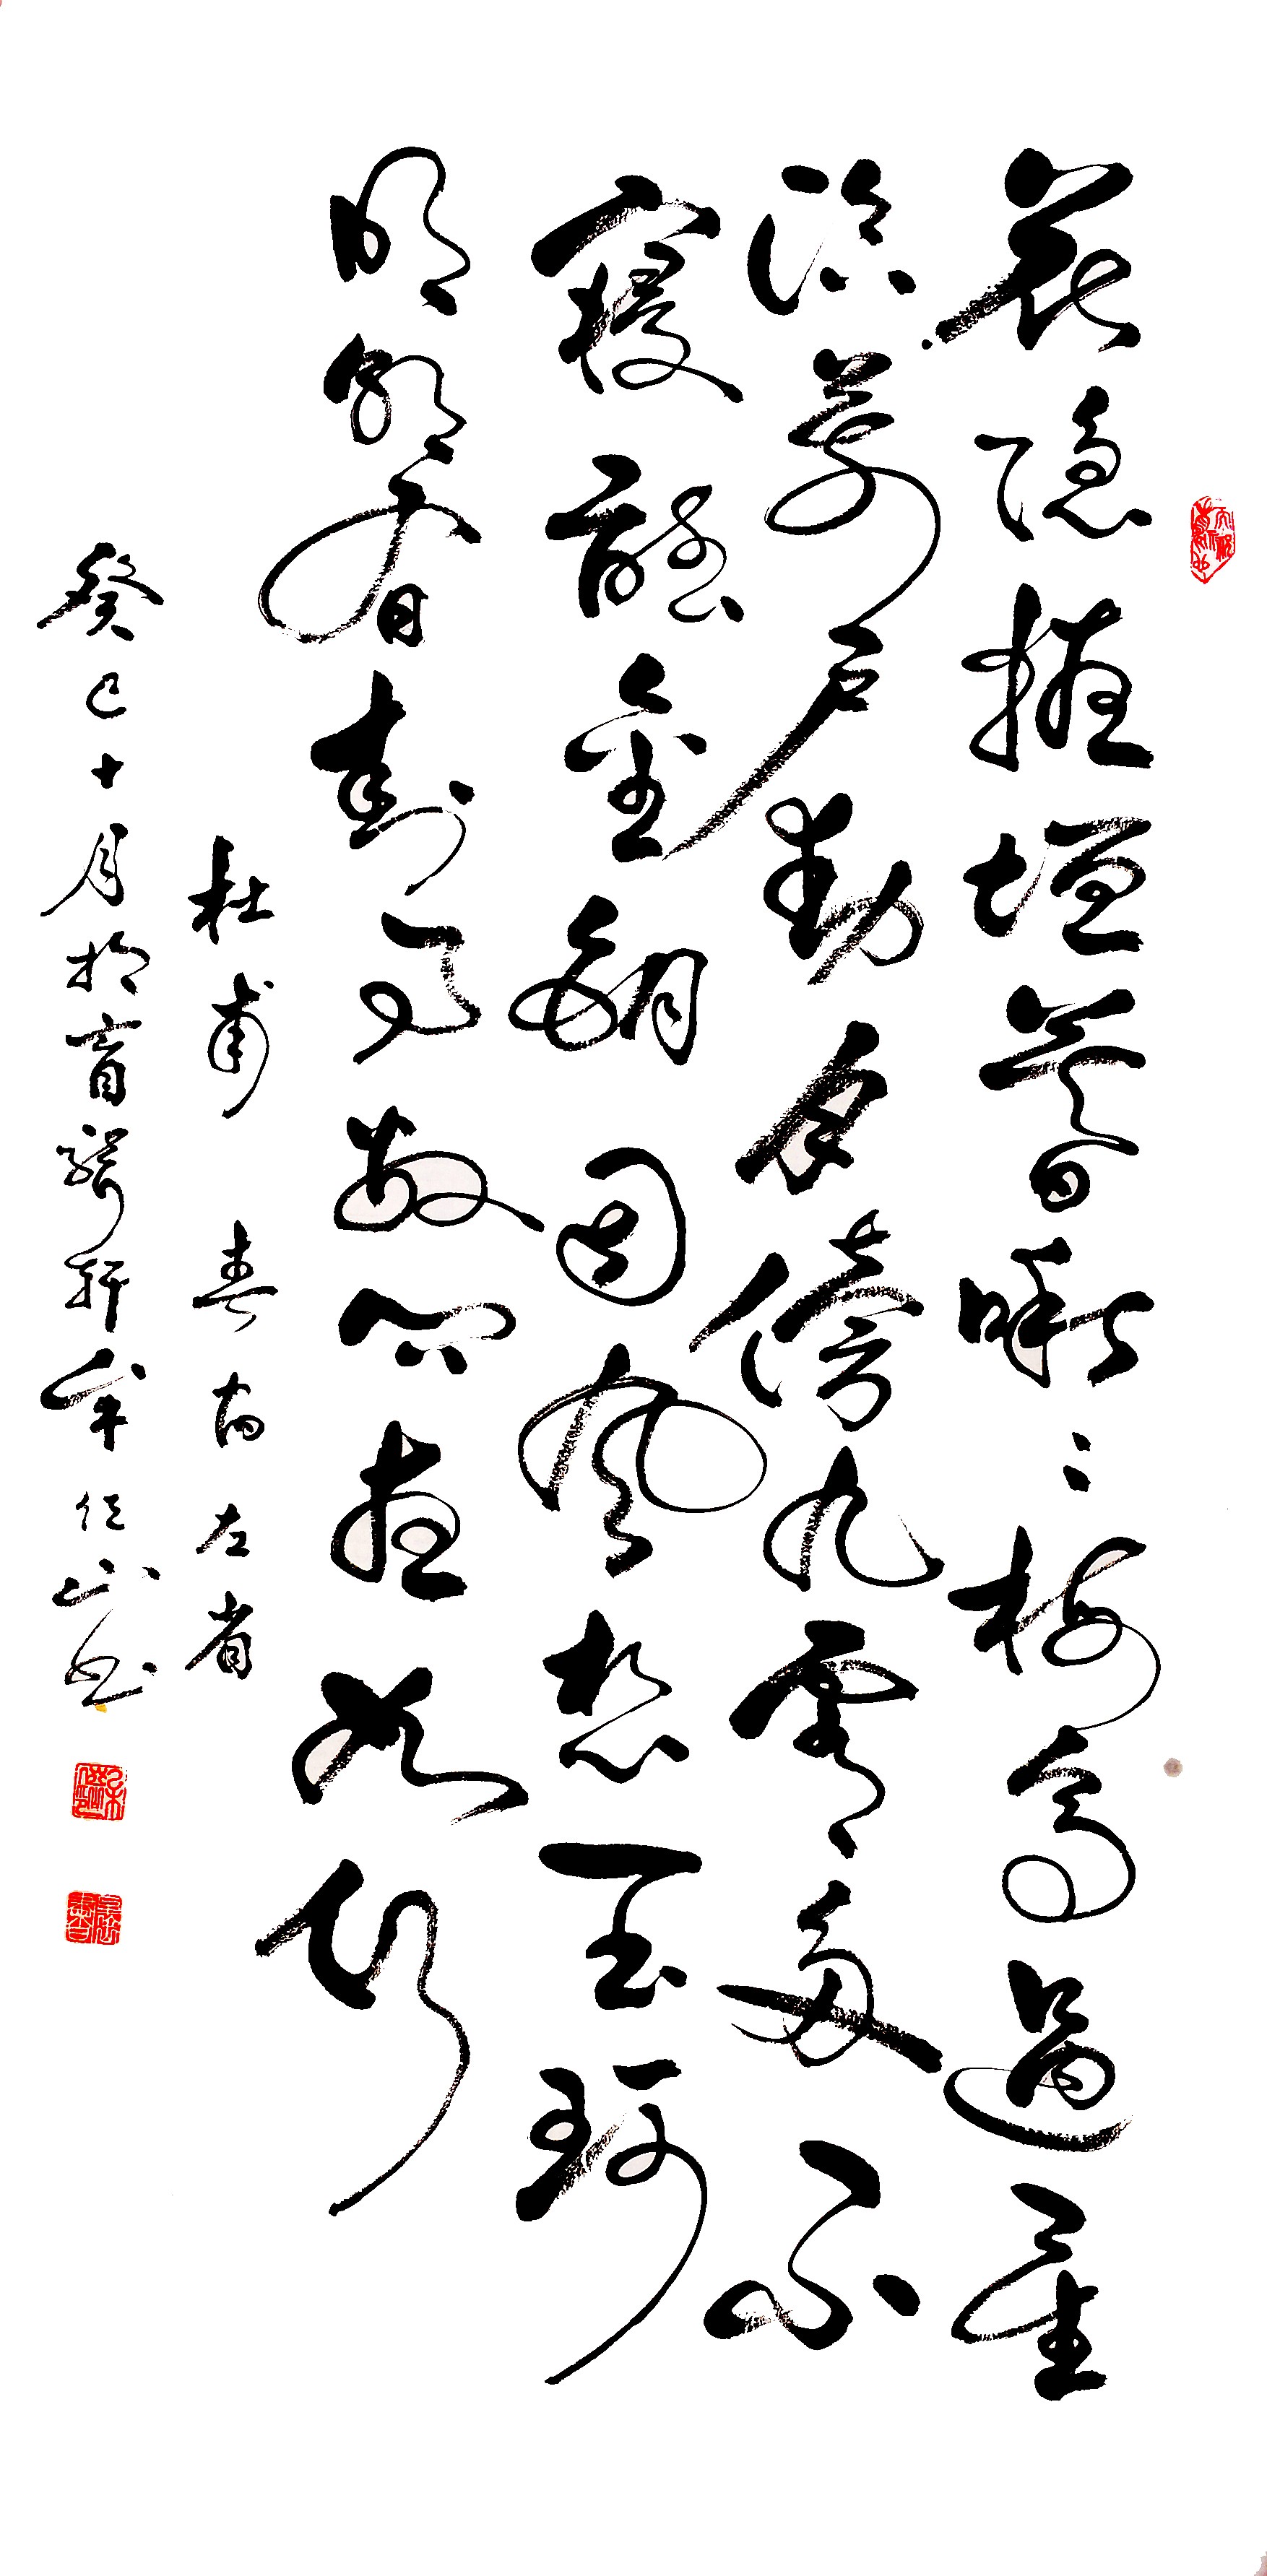 花隐掖垣暮啾〻栖鸟过星
临萬户动月傍九霄多不
寝聽金钥因风想玉珂
明朝有封事数问夜如何
杜甫 春宿左省
癸巳十月於盲驴轩 山书